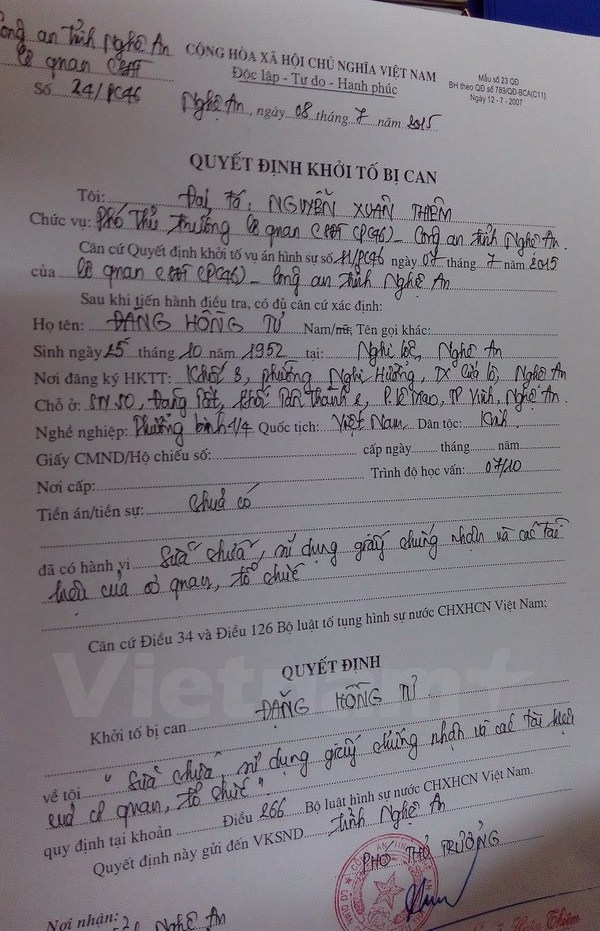 Công an tỉnh Nghệ An
Cơ quan CSĐT
Số 24/PC46
CỘNG HÒA XÃ HỘI CHỦ NGHĨA VIỆT NAM
Độc lập - Tự do - Hạnh phúc
Mẫu số 23 QĐ
BH theo QĐ số 789/QĐ-BCA(C11)
Ngày 12 - 7 - 2007
Nghệ An, ngày 08 tháng 7 năm 2015
QUYẾT ĐỊNH KHỞI TỐ BỊ CAN
Tôi: Đại tá, NGUYỄN XUÂN THIÊM
Chức vụ: Phó Thủ trưởng Cơ quan CSĐT (PC46) - Công an tỉnh Nghệ An.
Căn cứ Quyết định khởi tố vụ án hình sự số 11/PC46 ngày 07 tháng 7 năm 2015
của Cơ quan CSĐT (PC46) - Công an tỉnh Nghệ An
Sau khi tiến hành điều tra, có đủ căn cứ xác định:
Họ tên: ĐẶNG HỒNG TƯ Nam/nữ; Tên gọi khác:
Sinh ngày 25 tháng 10 năm 1952 tại: Nghi Lộc, Nghệ An
Nơi đăng ký HKTT: Khối 3, phường Nghi Hương, TX Cửa Lò, Nghệ An
Chỗ ở: SN 50, Đặng Tất, khối Tân Thành 2, P. Lê Mao, TP Vinh, Nghệ An.
Nghề nghiệp: Thương binh 4/4 Quốc tịch: Việt Nam Dân tộc: Kinh
Giấy CMND/Hộ chiếu số: cấp ngày tháng năm
Nơi cấp: Trình độ học vấn: 07/10
Tiền án/tiền sự: Chưa có
đã có hành vi Sửa chữa, sử dụng giấy chứng nhận và các tài
liệu của cơ quan, tổ chức
Căn cứ Điều 34 và Điều 126 Bộ luật tố tụng hình sự nước CHXHCN Việt Nam;
QUYẾT ĐỊNH
Vietnam+
Khởi tố bị can ĐẶNG HỒNG TƯ
về tội "Sửa chữa, sử dụng giấy chứng nhận và các tài liệu
của cơ quan, tổ chức".
quy định tại khoản Điều 266 Bộ luật hình sự nước CHXHCN Việt Nam.
Quyết định này gửi đến VKSND tỉnh Nghệ An
PHÓ THỦ TRƯỞNG
Nơi nhận:
Nghệ An
Xuân Thiêm